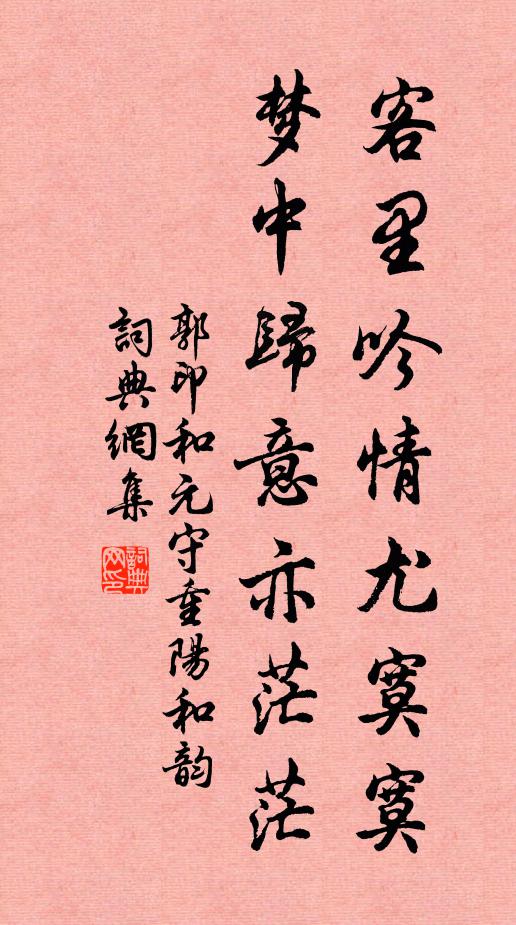 客里吟情尤寞寞
梦中歸意亦茫茫
郭印和元守重陽和韵
詞典網集
詞典网印